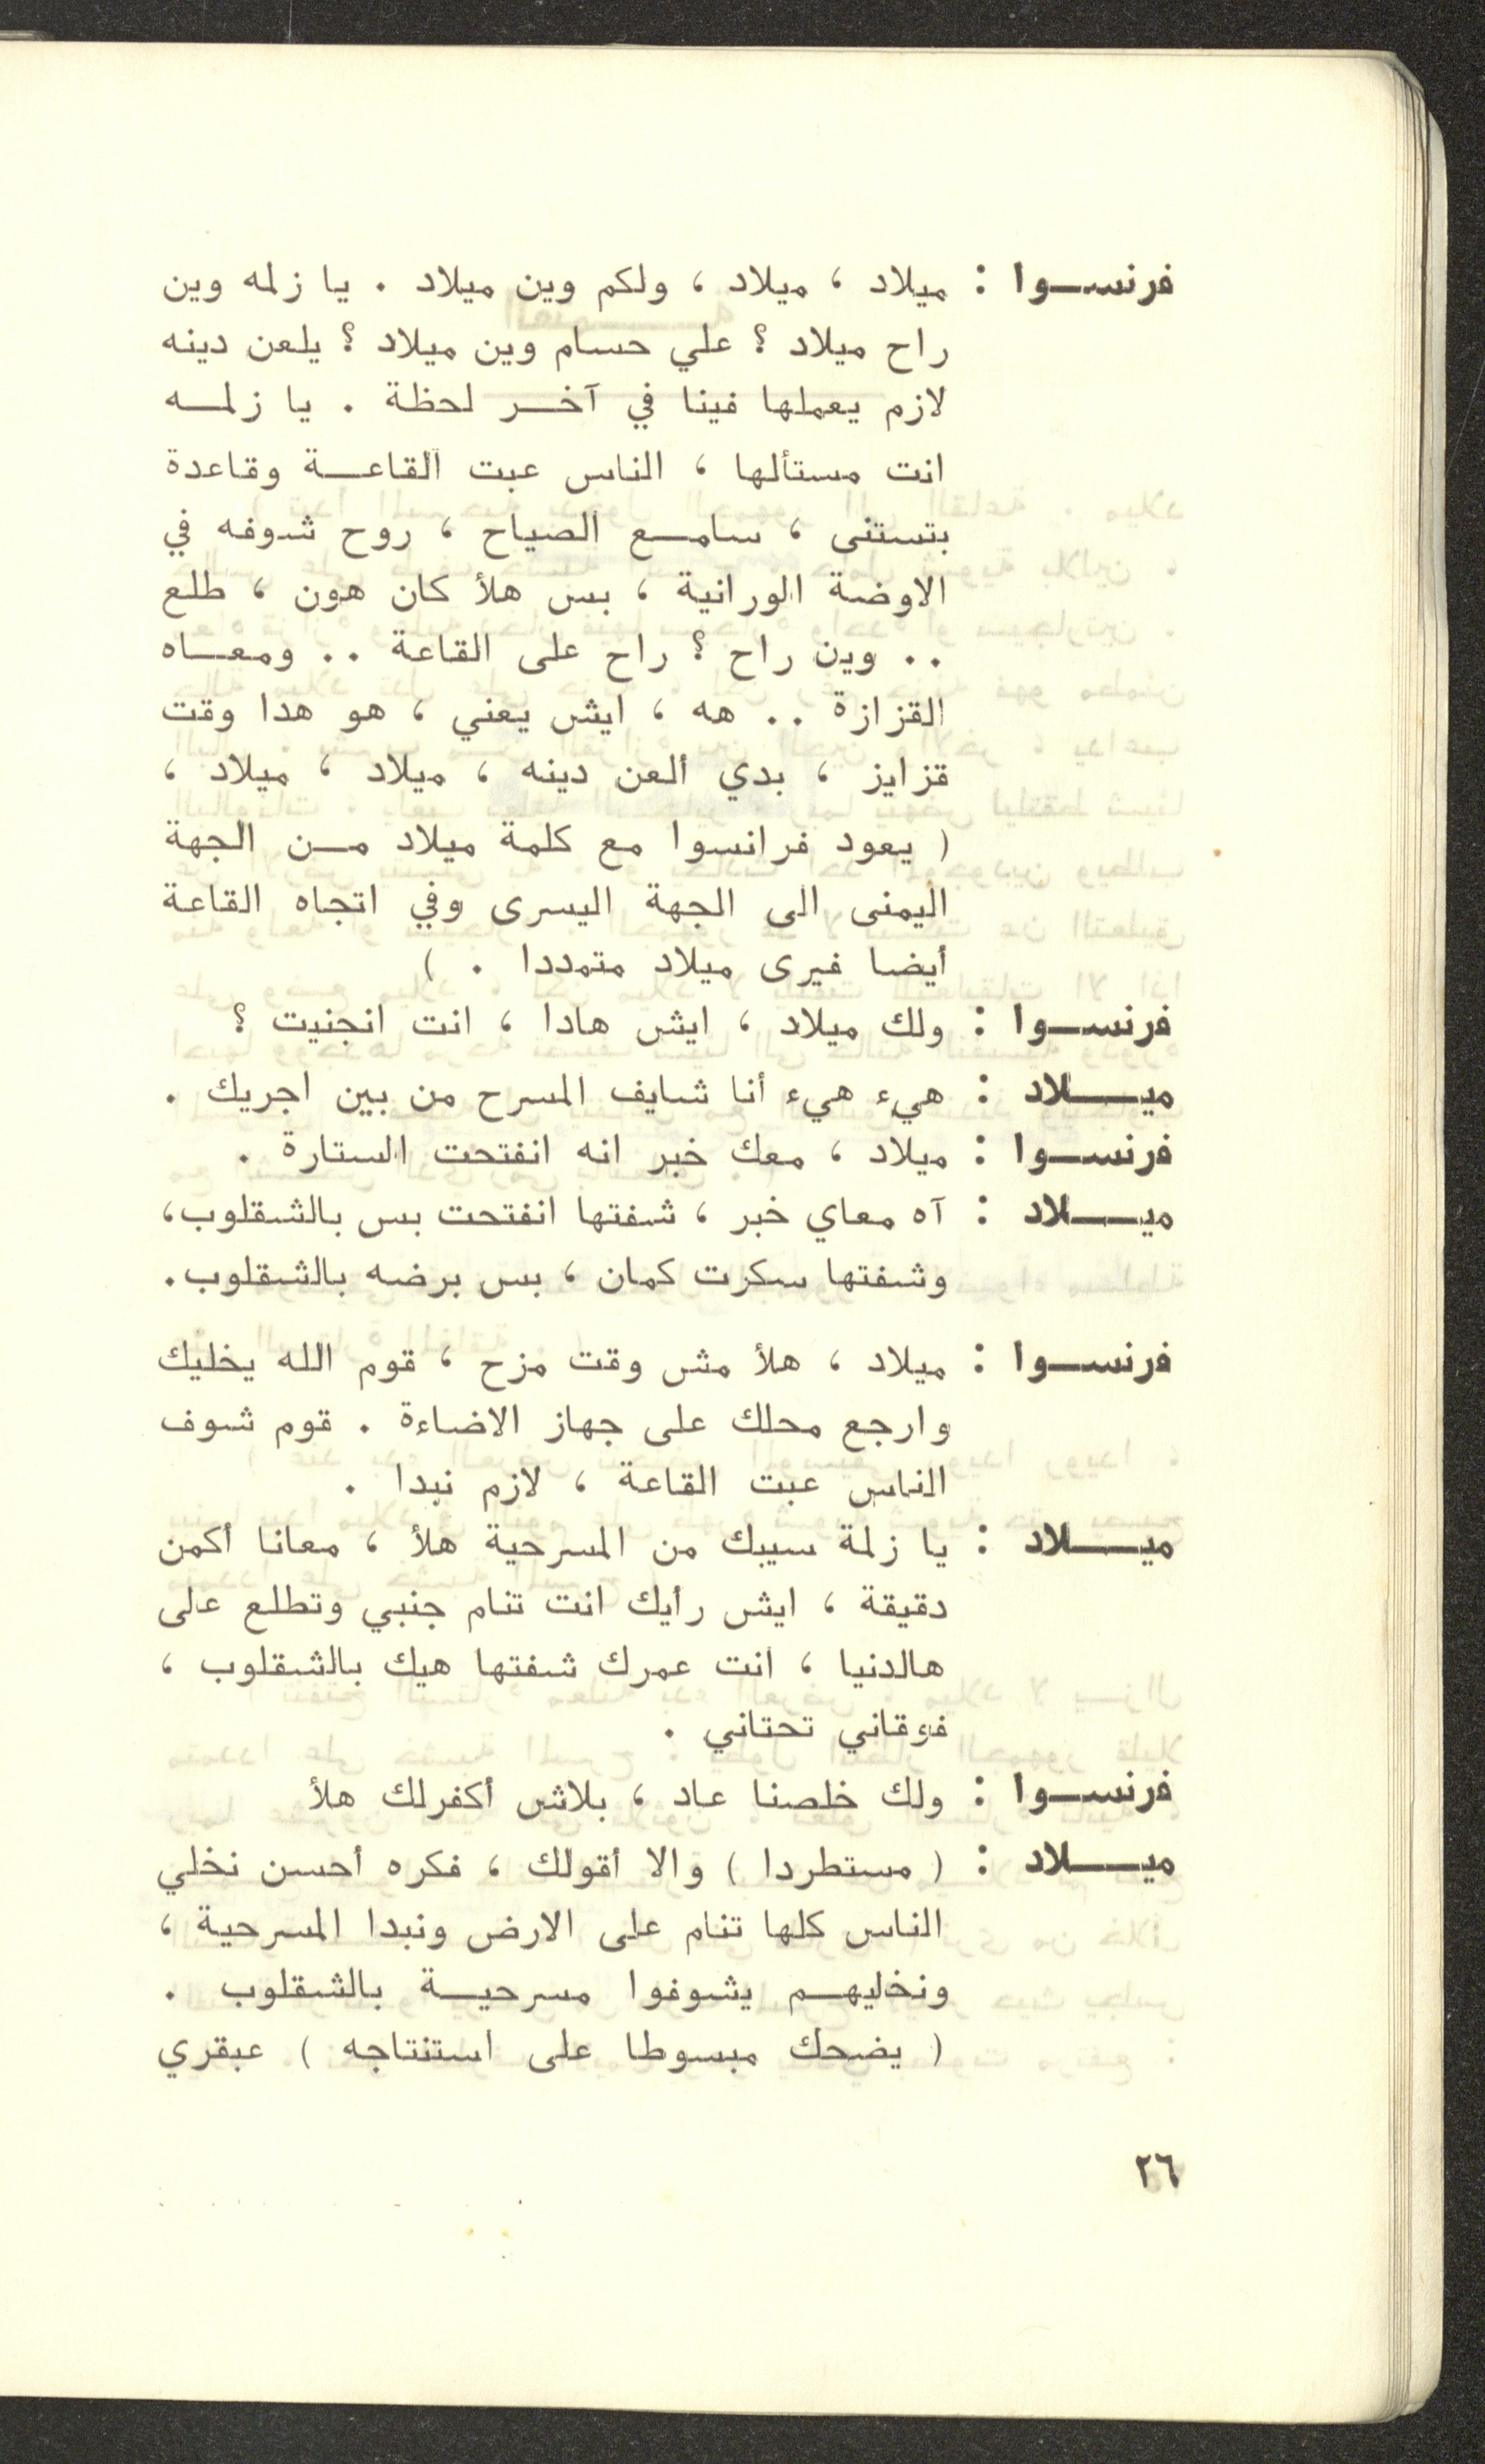 فرنسوا : ميلاد ، ميلاد ، ولكم وين ميلاد . يا زلمه وين
راح ميلاد ؟ علي حسام وين ميلاد ؟ يلعن دينه
لازم يعملها فينا في آخر لحظة . يا زلمه
انت مستألها ، الناس عبت القاعة وقاعدة
بتستنى ، سامع الصياح ، روح شوفه في
الاوضة الورانية ، بس هلأ كان هون ، طلع
.. وين راح ؟ راح على القاعة .. ومعاه
القزازة .. هه ، ايش يعني ، هو هدا وقت
قزايز ، بدي ألعن دينه ، ميلاد ، ميلاد ،
( يعود فرانسوا مع كلمة ميلاد من الجهة
اليمنى الى الجهة اليسرى وفي اتجاه القاعة
أيضا فيرى ميلاد متمددا . )
فرنسوا : ولك ميلاد ، ايش هادا ، انت انجنيت ؟
ميلاد : هيء هيء أنا شايف المسرح من بين اجريك .
فرنسوا : ميلاد ، معك خبر انه انفتحت الستارة .
ميلاد : آه معاي خبر ، شفتها انفتحت بس بالشقلوب،
وشفتها سكرت كمان ، بس برضه بالشقلوب.
فرنسوا : ميلاد ، هلأ مش وقت مزح ، قوم الله يخليك
وارجع محلك على جهاز الاضاءة . قوم شوف
الناس عبت القاعة ، لازم نبدا .
ميلاد : يا زلمة سيبك من المسرحية هلأ ، معانا أكمن
دقيقة ، ايش رأيك انت تنام جنبي وتطلع على
هالدنيا ، انت عمرك شفتها هيك بالشقلوب ،
فوقاني تحتاني .
فرنسوا : ولك خلصنا عاد ، بلاش أكفرلك هلأ
ميلاد : ( مستطردا ) والا أقولك ، فكره أحسن نخلي
الناس كلها تنام على الارض ونبدا المسرحية ،
ونخليهم يشوفوا مسرحية بالشقلوب .
( يضحك مبسوطا على استنتاجه ) عبقري
٢٦